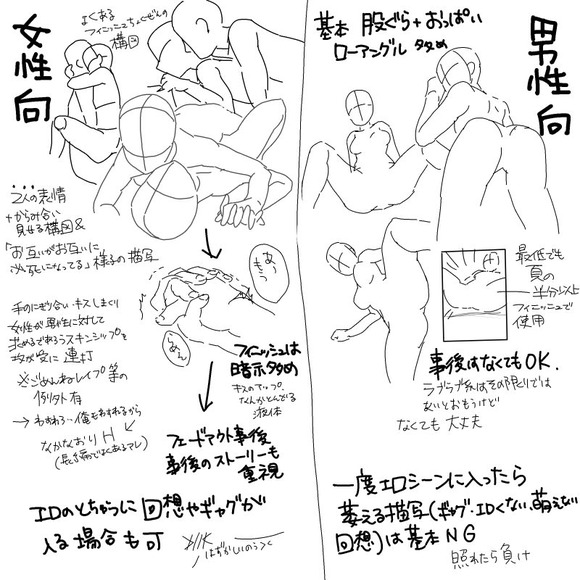 女性向
よくある
フィニッシュちょくぜんの
構図
2人の表情
+からみ合い
見せる構図&
「お互いがお互いに
必死になってる」様子の描写
あっ
もっ
手のにぎり合い・キスしまくり
女性が男性に対して
求めるであろうスキンシップを
攻が受に連打
※ごめんねレイプ等の
例外有
なかなおりH
(長編ではよくあるアレ)
フィニッシュは
暗示多め
キスのアップ、
なんかとんでる
液体
フェードアウト事後
事後のストーリーも
重視
エロのとちゅうに回想やギャグが
入る場合も可
はずかしいのうっ
男性向
基本 股ぐら+おっぱい
ローアングル多め
最低でも
頁の
半分以上
フィニッシュで
使用
事後はなくてもOK.
ラブラブ系はその限りでは
ないとおもうけど
なくても大丈夫
一度エロシーンに入ったら
萎える描写(ギャグ・エロくない、萌えない
回想)は基本NG
照れたら負け